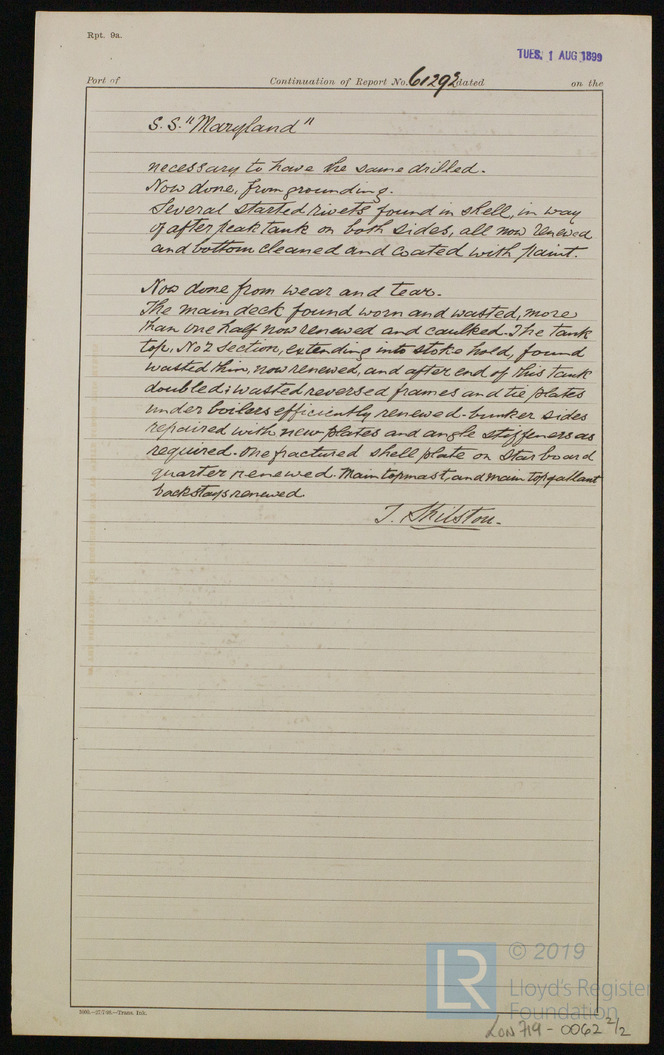 Rpt. 9a.
TUES. 1 AUG 1899
Port of Continuation of Report No. 61292 dated on the
S.S. "Maryland"
necessary to have the same drilled.
Now done, from grounding.
Several started rivets found in shell, in way
of after peak tank on both sides, all now renewed
and bottom cleaned and coated with paint.
Now done from wear and tear.
The main deck found worn and wasted, more
than one half now renewed and caulked. The tank
top, No 2 section, extending into stoke hold, found
wasted thin, now renewed, and after end of this tank
doubled: wasted reversed frames and tie plates
under boilers efficiently renewed. bunker sides
repaired with new plates and angle stiffeners as
required. One fractured shell plate on Starboard
quarter renewed. Main topmast, and main topgallant
backstays renewed.
J. Skilston.
© 2019
LR
Lloyd's Register
Foundation
LON 719-0062 2/2